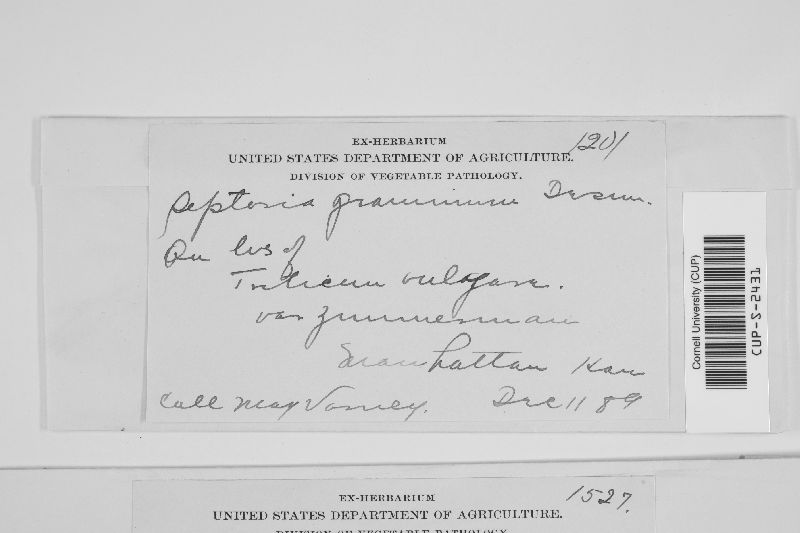 EX-HERBARIUM 1201
UNITED STATES DEPARTMENT OF AGRICULTURE.
DIVISION OF VEGETABLE PATHOLOGY.
Septoria graminum Desm.
On lvs of
Triticum vulgare.
var Zimmerman
Manhattan Kan
Coll May Varney. Dec 11 89
Cornell University (CUP)
CUP-S-2431
EX-HERBARIUM 1527.
UNITED STATES DEPARTMENT OF AGRICULTURE.
DIVISION OF VEGETABLE PATHOLOGY.